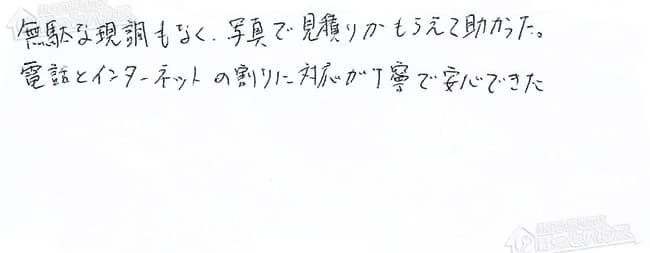 無駄な現調もなく、写真で見積りがもらえて助かった。
電話とインターネットの割りに対応が丁寧で安心できた